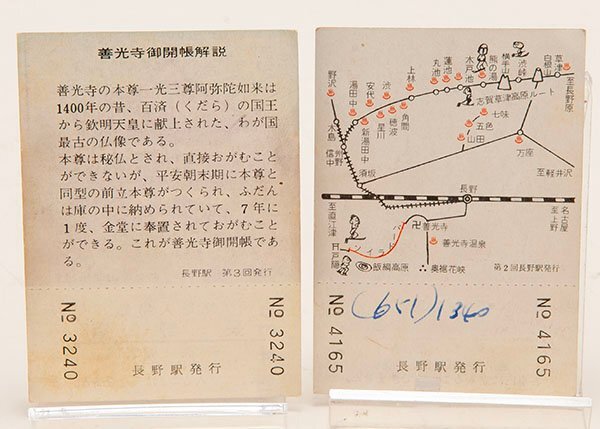 善光寺御開帳解説
善光寺の本尊一光三尊阿弥陀如来は
1400年の昔、百済(くだら)の国王
から欽明天皇に献上された、わが国
最古の仏像である。
本尊は秘仏とされ、直接おがむこと
ができないが、平安朝末期に本尊と
同型の前立本尊がつくられ、ふだん
は庫の中に納められていて、7年に
1度、金堂に奉置されておがむこと
ができる。これが善光寺御開帳であ
る。
長野駅 第3回発行
No 3240
No 3240
長野駅発行
野沢
湯田中
安代
渋
上林
丸池
蓮池
木戸池
熊の湯
横手山
渋峠
白根山
草津
至長野原
志賀草津高原ルート
木島
信中
州野
新湯田中
星川
穂波
角間
山田
五色
七味
万座
須坂
至軽井沢
長野
至直江津
至上野
名古屋
卍善光寺
善光寺温泉
バードライン
戸隠
飯綱高原
奥裾花峡
第2回長野駅発行
(651)1340
No 4165
No 4165
長野駅発行